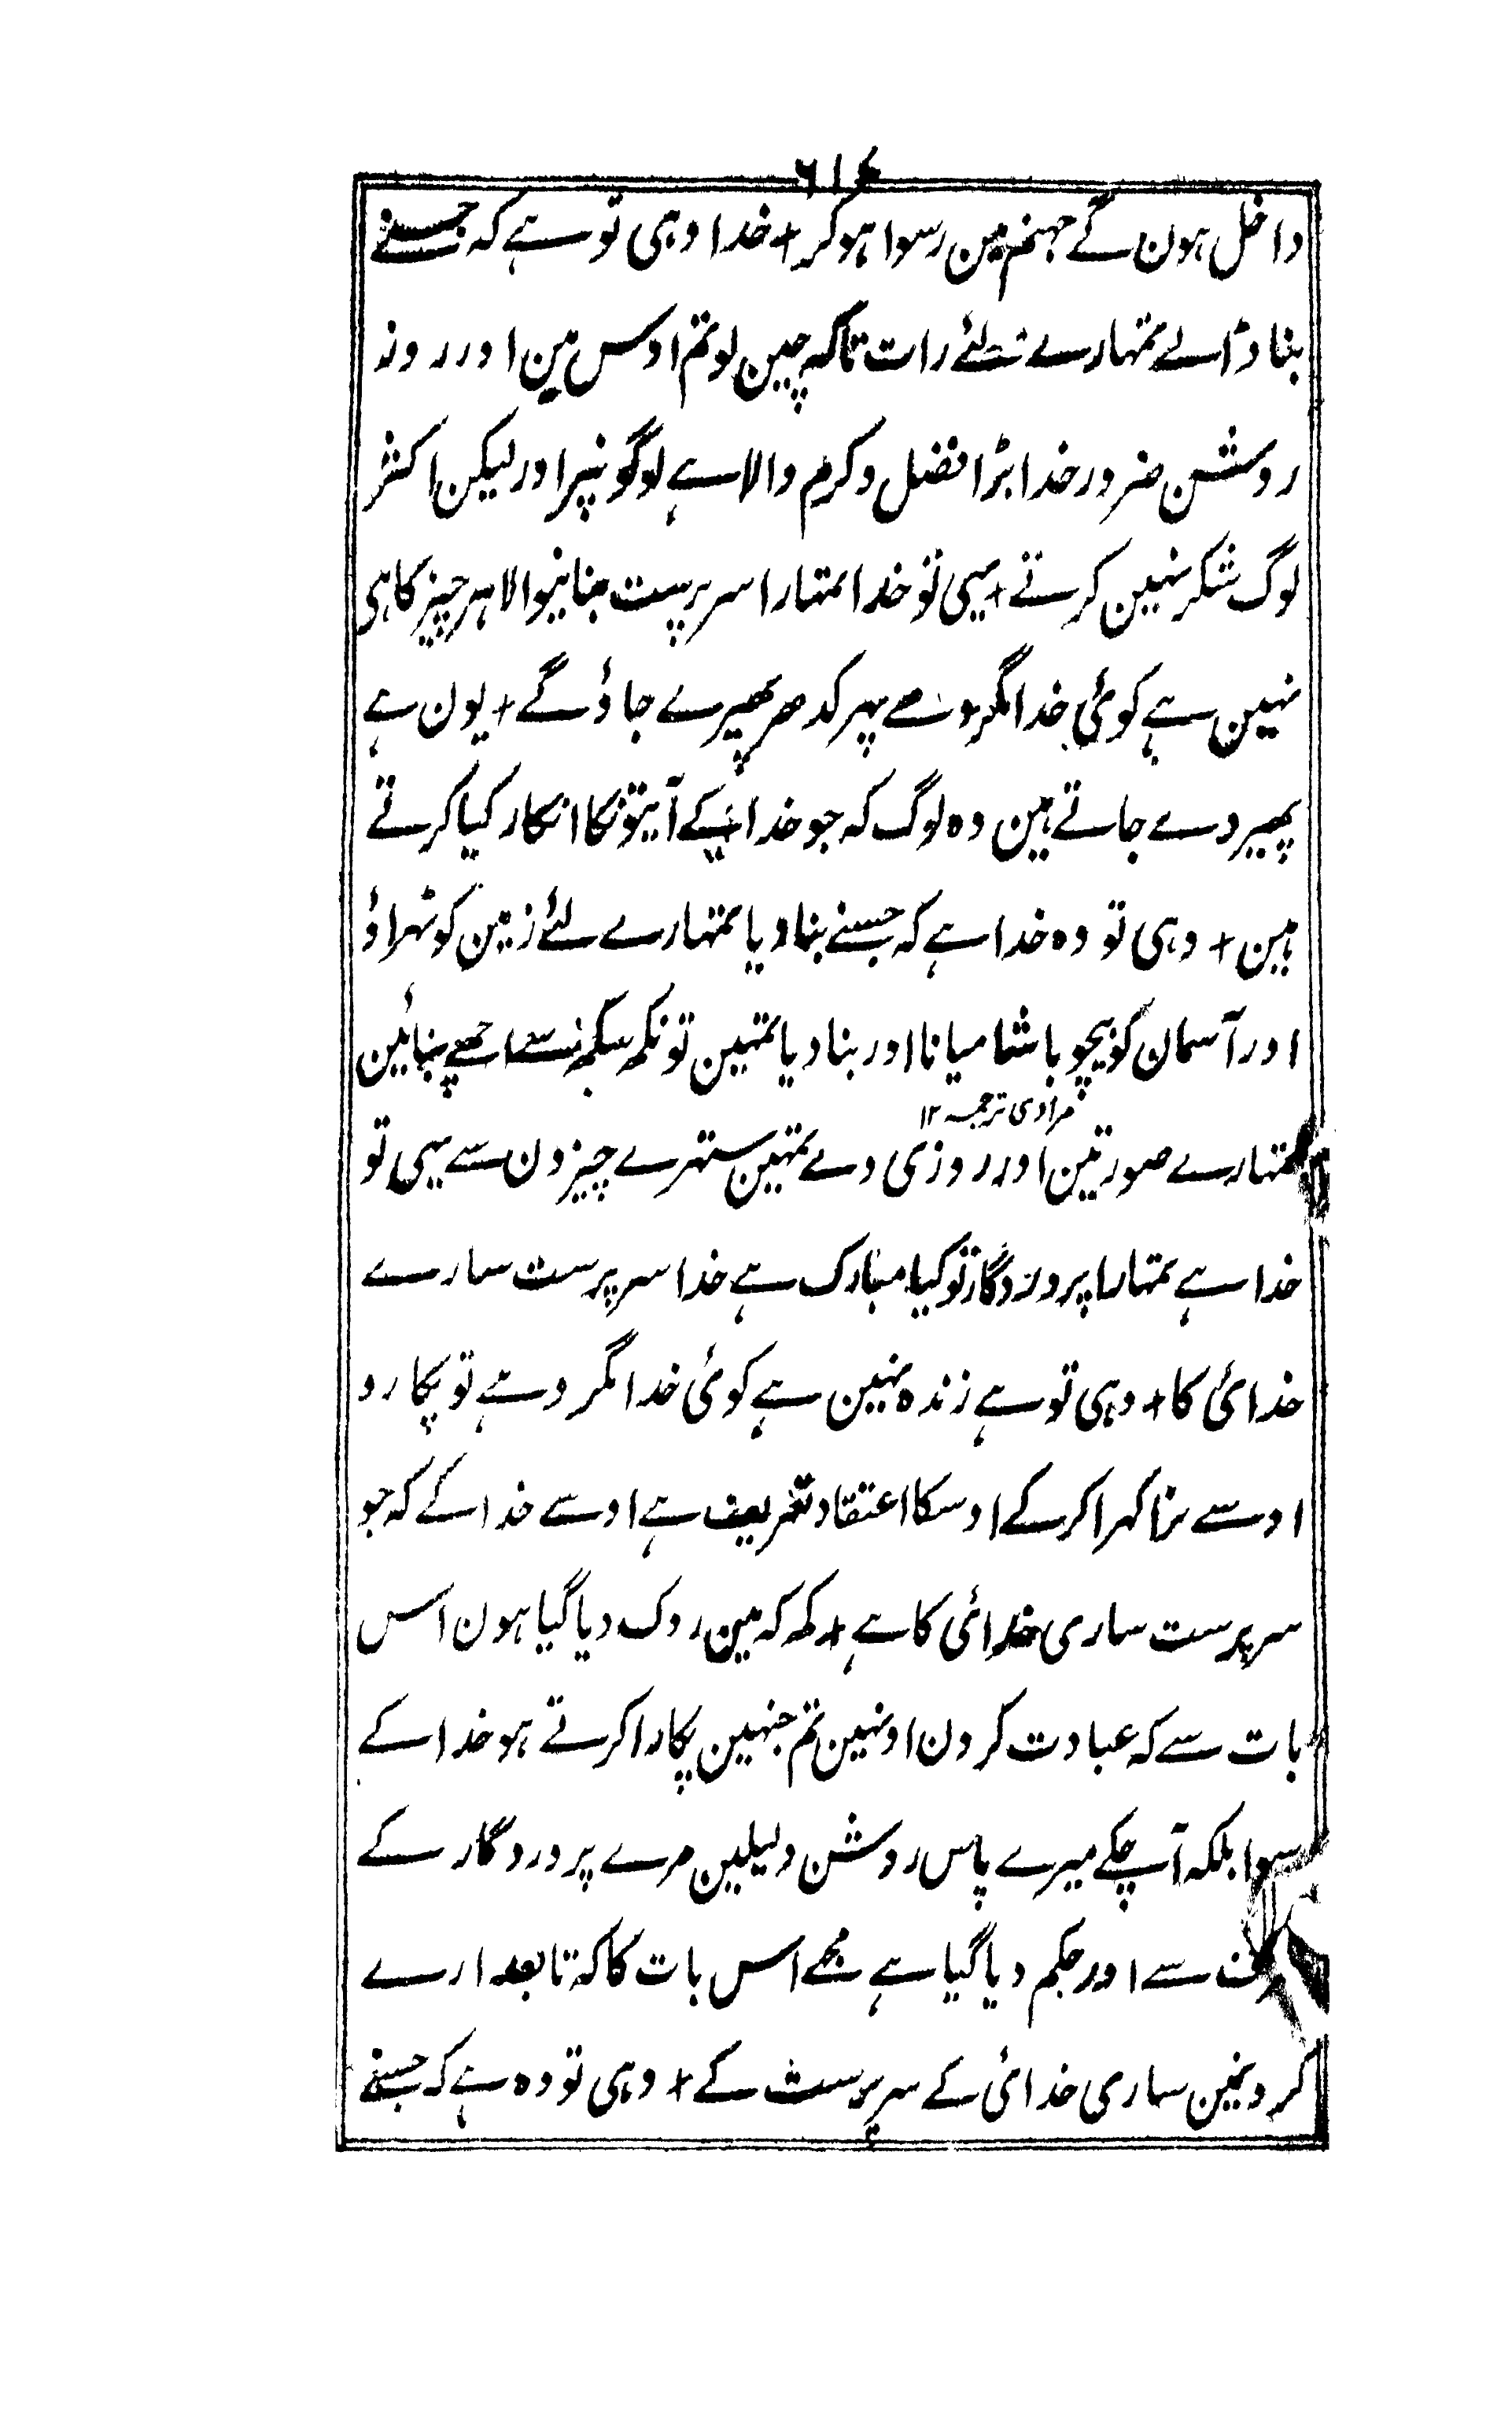 ۶۱۶
داخل ہون گے جہنم مین رسوا ہوکر + خدا وہی تو ہے کہ جسنے
بنا ڈالے تمہارے لئے رات تاکہ چین لو تم اوس مین اور روز
روشن ضرور خدا بڑا فضل و کرم والا ہے لوگونپر اور لیکن اکثر
لوگ شکر نہین کرتے + یہی تو خدا تمہارا سرپرست بنانیوالا ہر چیز کا ہی
نہین ہے کوئی خدا مگر وہے پہر کدھر پھیرے جاؤ گے + یون ہے
پھیر دے جاتے ہین وہ لوگ کہ جو خدا کے آیتونکا انکار کیا کرتے
ہین + وہی تو وہ خدا ہے کہ جسنے بنا دیا تمہارے لئے زمین کو ٹہراؤ
اور آسمان کو بیچوبا شامیانا اور بنا دیا تمہین تو نکہہ سکہہ سے اچھے بنائین
مرادی ترجمہ ۱۲
تمہارے صورتین اور روزی دے تمہین ستہرے چیزون سے یہی تو
خدا ہے تمہارا پروردگار تو کیا مبارک ہے خدا سرپرست سارے
خدائی کا + وہی تو ہے زندہ نہین ہے کوئی خدا مگر وہے تو پکارو
اوسے نرا کہرا کرکے اوسکا اعتقاد تعریف ہے اوسے خدا کے کہ جو
سرپرست ساری خدائی کا ہے + کہہ کہ مین روک دیا گیا ہون اس
بات سے کہ عبادت کرون اونہین تم جنہین پکارا کرتے ہو خدا کے
سوا بلکہ آ چکے میرے پاس روشن دلیلین مرے پروردگار کے
طرف سے اور حکم دیا گیا ہے مجھے اس بات کا کہ تابعدارے
کرون مین ساری خدائی کے سرپرست کے + وہی تو وہ ہے کہ جسنے